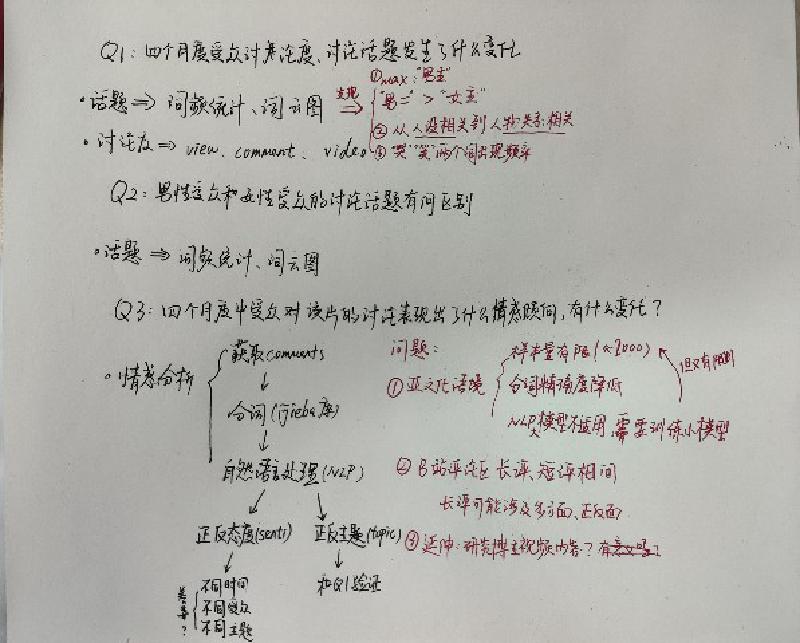 Q1: 四个月度受众讨论浓度、讨论话题发生了什么变化
·话题 ⇒ 词频统计、词云图 发现 ⇒
①max: "男主"
"男二" > "女主"
②从人设相关到人物关系相关
③"哭" "笑"两个词出现频率
·讨论度 ⇒ view、comment、video
Q2: 男性受众和女性受众的讨论话题有何区别
·话题 ⇒ 词频统计、词云图
Q3: 四个月度中受众对该片的讨论表现出了什么情感倾向,有什么变化?
·情感分析
获取comments
↓
分词(jieba库)
↓
自然语言处理(NLP)
正反态度(senti) 正反主题(topic)
差异? 不同时间
不同受众
不同主题
和Q1验证
问题:
①亚文化语境
样本量有限(≈7000)
分词精确度降低
NLP大模型不适用,需要训练小模型
但又有限制
②B站评论区长评、短评相间
长评可能涉及多方面、正反面.
③延伸:研究博主视频内容?有意义吗?